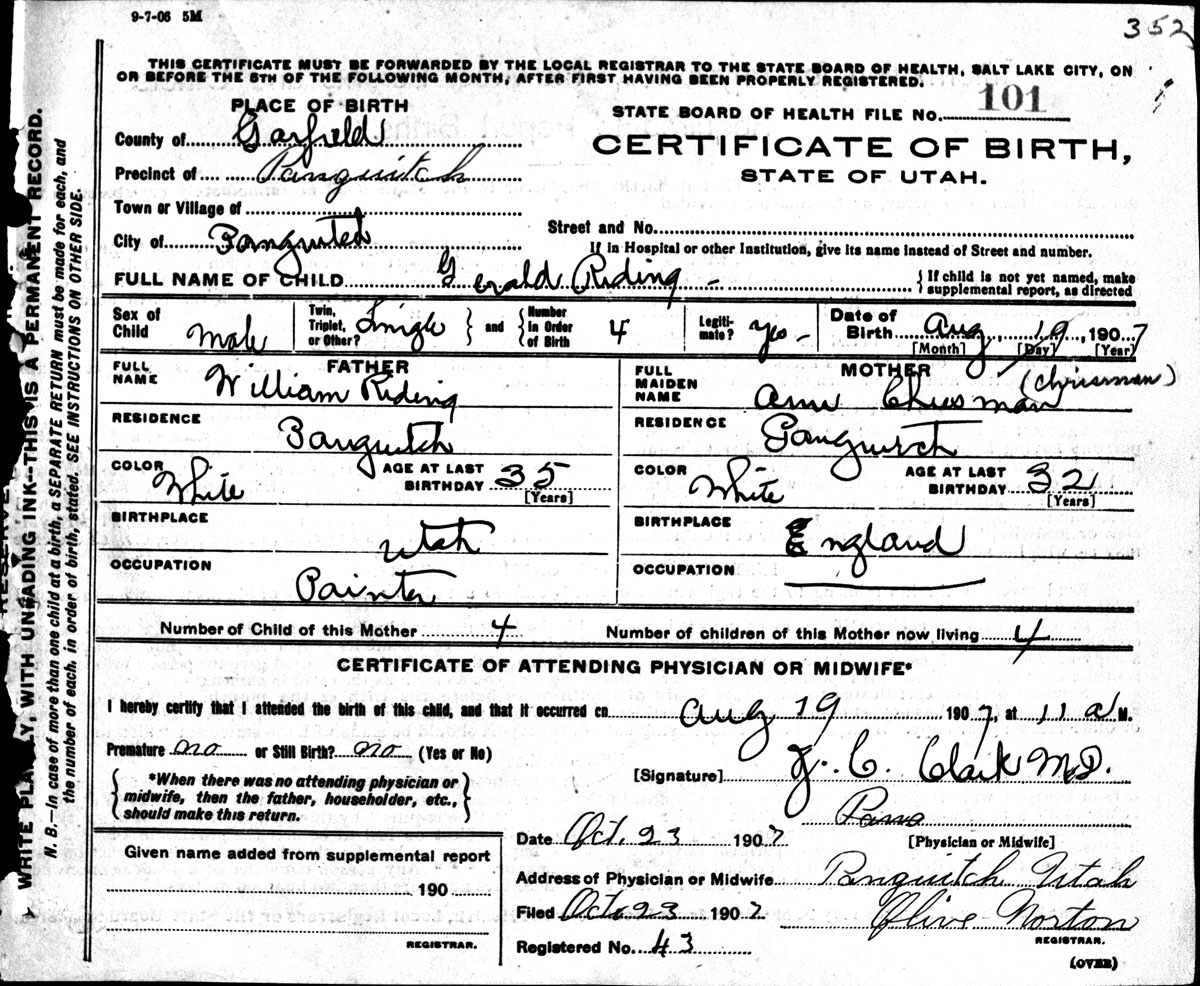 9-7-06 5M
352
THIS CERTIFICATE MUST BE FORWARDED BY THE LOCAL REGISTRAR TO THE STATE BOARD OF HEALTH, SALT LAKE CITY, ON
OR BEFORE THE 5TH OF THE FOLLOWING MONTH, AFTER FIRST HAVING BEEN PROPERLY REGISTERED.
PLACE OF BIRTH
STATE BOARD OF HEALTH FILE NO. 101
County of Garfield
CERTIFICATE OF BIRTH,
Precinct of Panguitch
STATE OF UTAH.
Town or Village of
Street and No.
City of Panguitch
If in Hospital or other Institution, give its name instead of Street and number.
FULL NAME OF CHILD Gerald Riding - { If child is not yet named, make supplemental report, as directed
Sex of Child Male Twin, Triplet, or Other? Single } and { Number in Order of Birth 4 Legiti- mate? Yes - Date of Birth Aug, 19, 1907 [Month] [Day] [Year]
FATHER
FULL NAME William Riding
RESIDENCE Panguitch
COLOR White AGE AT LAST BIRTHDAY 35 [Years]
BIRTHPLACE Utah
OCCUPATION Painter
MOTHER
FULL MAIDEN NAME Ann Chrisman (Chrisman)
RESIDENCE Panguitch
COLOR White AGE AT LAST BIRTHDAY 32 [Years]
BIRTHPLACE England
OCCUPATION
Number of Child of this Mother 4 Number of children of this Mother now living 4
CERTIFICATE OF ATTENDING PHYSICIAN OR MIDWIFE*
I hereby certify that I attended the birth of this child, and that it occurred on Aug 19 1907, at 11 a M.
Premature no or Still Birth? no (Yes or No)
{ *When there was no attending physician or midwife, then the father, householder, etc., should make this return. }
[Signature] J. C. Clark M.D.
[Physician or Midwife]
Date Oct. 23 1907
Given name added from supplemental report
190
REGISTRAR.
Address of Physician or Midwife Panguitch Utah
Filed Oct 23 1907 Olive Norton
REGISTRAR.
Registered No. 43
(OVER)
WRITE PLAINLY, WITH UNFADING INK--THIS IS A PERMANENT RECORD.
N. B.—In case of more than one child at a birth, a SEPARATE RETURN must be made for each, and
the number of each, in order of birth, stated. SEE INSTRUCTIONS ON OTHER SIDE.